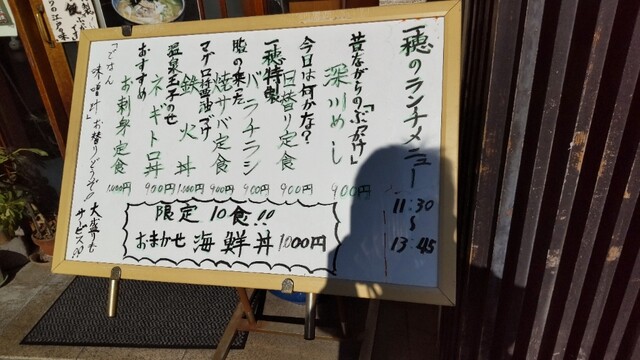 一穂のランチメニュー
11:30
〜
13:45
昔ながらの「ぶっかけ」
深川めし 900円
今日は何かな?
日替り定食 900円
一穂特製
バラチラシ 900円
脂の乗った
焼サバ定食 900円
マグロ醤油づけ
鉄火丼 1000円
温泉玉子のせ
ネギトロ丼 900円
おすすめ
お刺身定食 1000円
「ごはん
味噌汁」お替りどうぞ!! 大盛りも
サービス
限定10食!!
おまかせ海鮮丼1000円